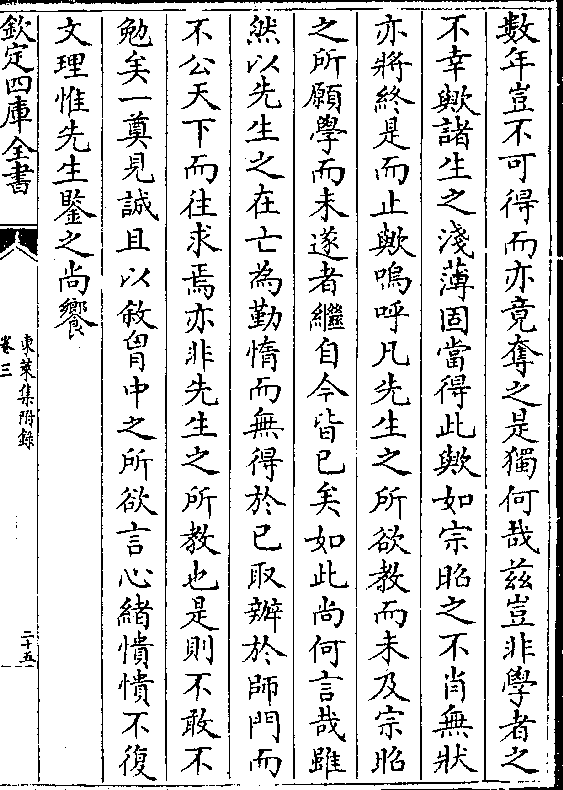 數年豈不可得而亦竟奪之是獨何哉兹豈非學者之
不幸歟諸生之淺薄固當得此歟如宗昭之不肖無狀
亦將終是而止歟嗚呼凡先生之所欲教而未及宗昭
之所願學而未遂者繼自今皆已矣如此尚何言哉雖
然以先生之在亡為勤惰而無得於已取辦於師門而
不公天下而往求焉亦非先生之所教也是則不敢不
勉矣一奠見誠且以敘胷中之所欲言心緒憒憒不復
文理惟先生鑒之尚饗
欽定四庫全書
東萊集附錄
卷三
二十五